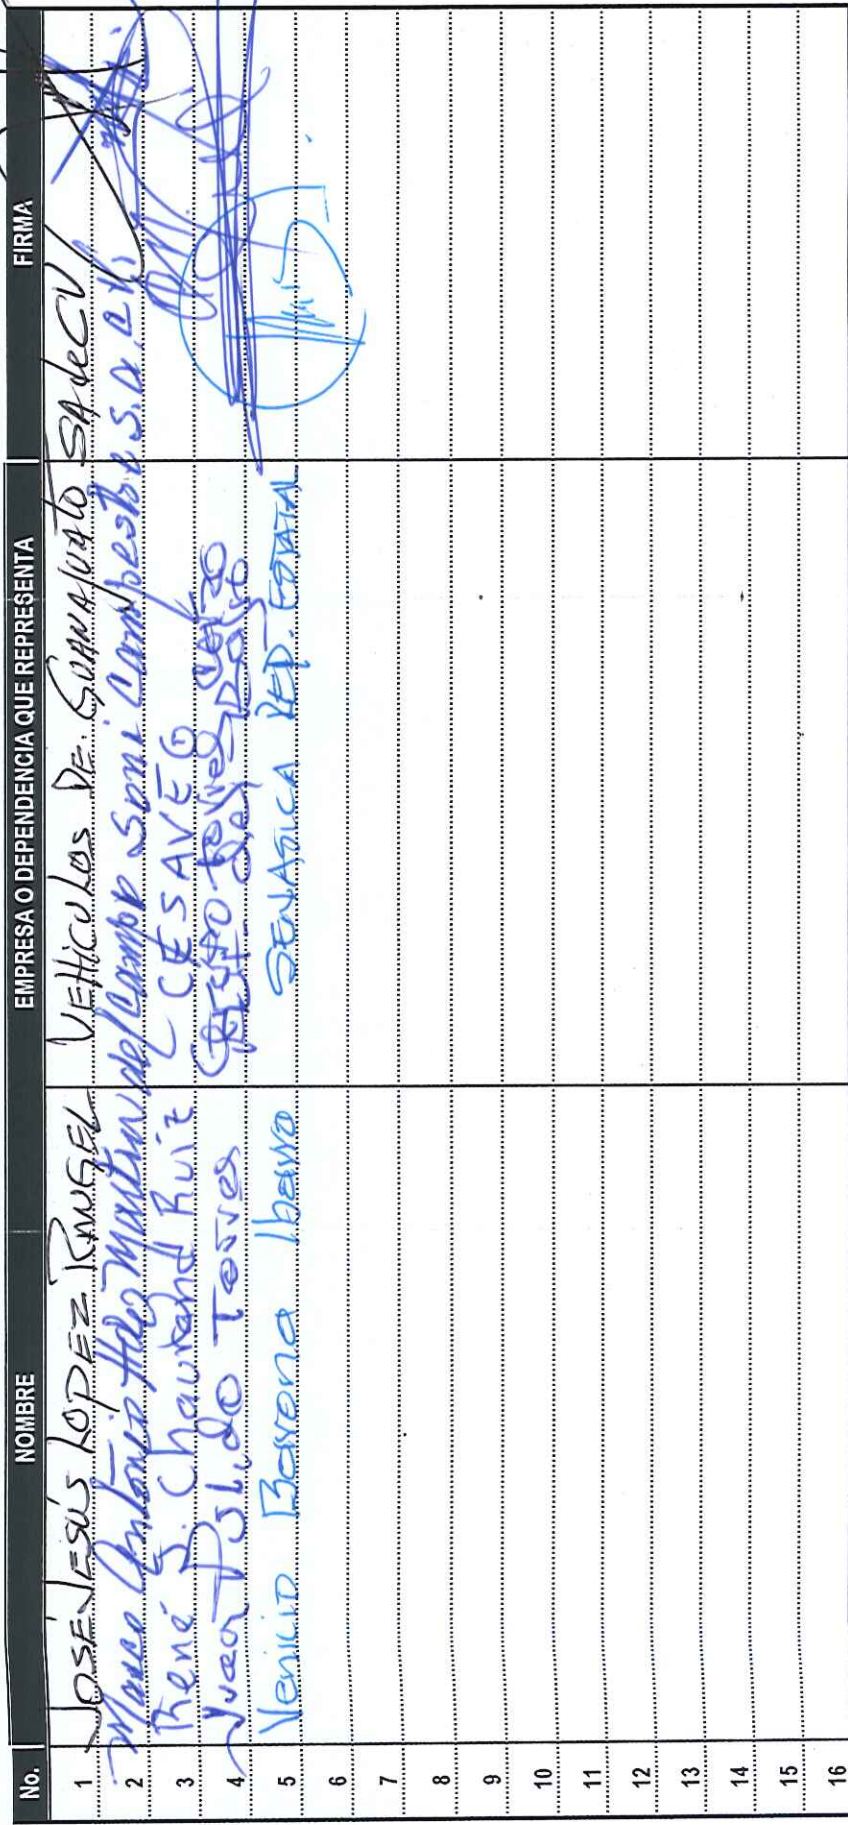 No. NOMBRE EMPRESA O DEPENDENCIA QUE REPRESENTA FIRMA
1 JOSÉ JESÚS LOPEZ RANGEL VEHICULOS DE GUANAJUATO SA de CV
2 Marco Antonio Martin del Campo Soni Campestre S.A. C.V.
3 René S. Chaurand Ruiz CESAVEG
4 Juan Pulido Torres
5 Venicio Barrona Ibarra SENASICA REP. ESTATAL
6
7
8
9
10
11
12
13
14
15
16